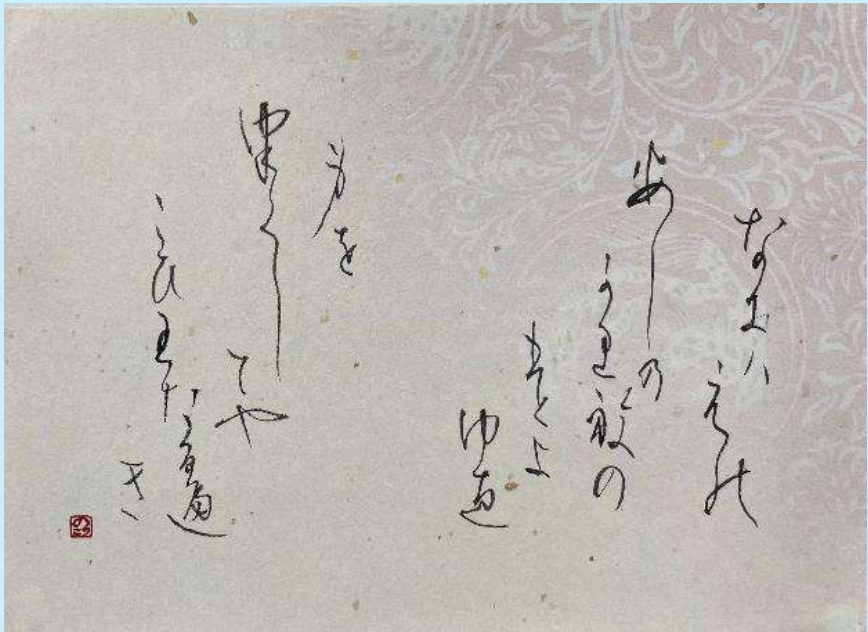 なにはえの
あしの
かりねの
ひとよ
ゆゑ
みを
つくし
てや
こひわたるべ
き